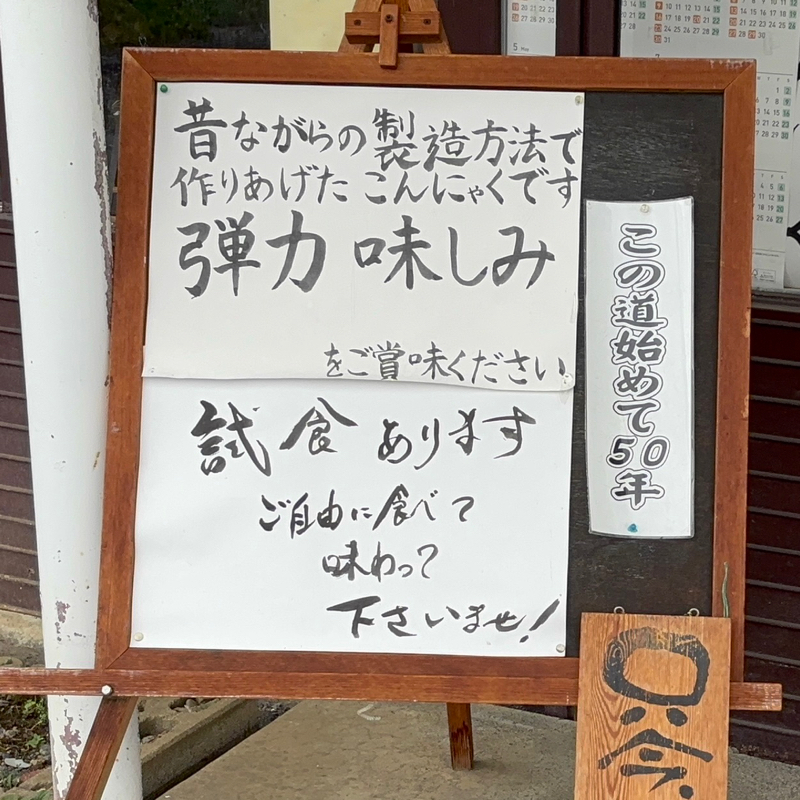 昔ながらの製造方法で
作りあげた こんにゃくです
弾力 味しみ
をご賞味ください
試食 あります
ご自由に食べて
味わって
下さいませ!
この道始めて50年
只今